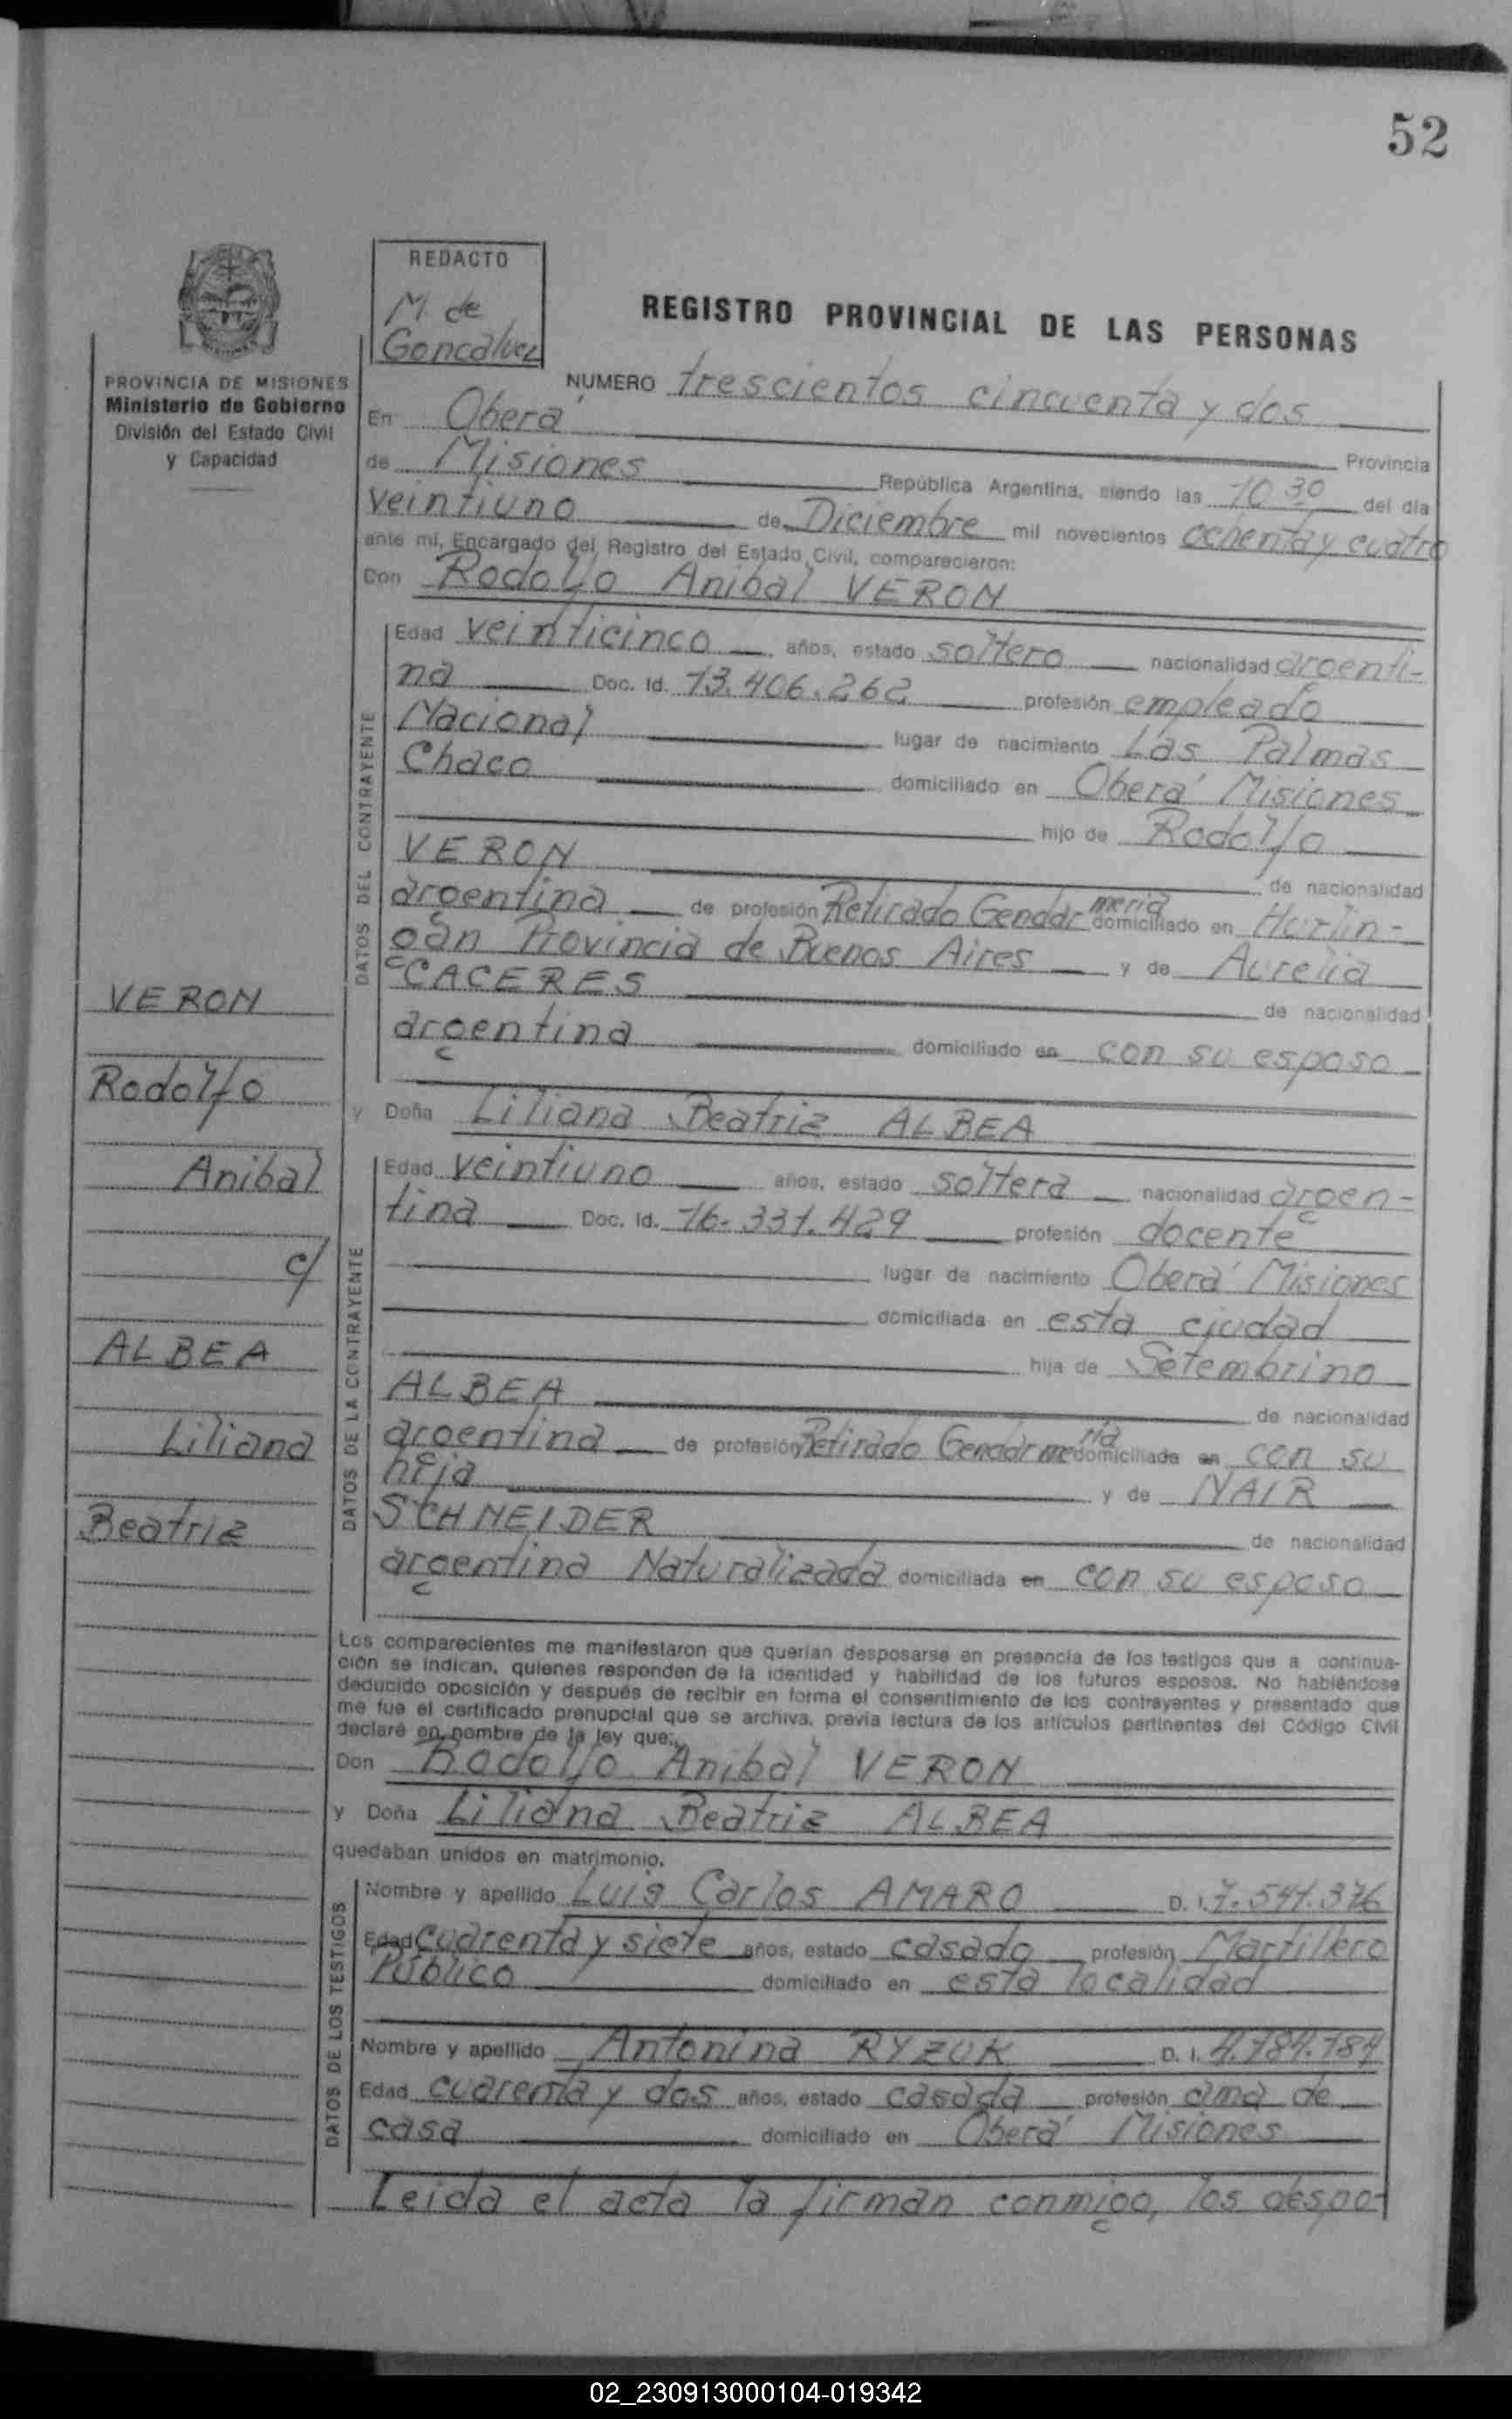 52
REDACTO
M de
Goncalvez
REGISTRO PROVINCIAL DE LAS PERSONAS
PROVINCIA DE MISIONES
Ministerio de Gobierno
División del Estado Civil
y Capacidad
NUMERO trescientos cincuenta y dos
En Oberá Provincia
de Misiones República Argentina, siendo las 10 30 del día
veintiuno de Diciembre mil novecientos ochenta y cuatro
ante mí, Encargado del Registro del Estado Civil, comparecieron:
Don Rodolfo Anibal VERON
DATOS DEL CONTRAYENTE
Edad veinticinco años, estado soltero nacionalidad argenti-
na Doc. Id. 13.406.262 profesión empleado
Nacional lugar de nacimiento Las Palmas
Chaco domiciliado en Oberá Misiones
hijo de Rodolfo
VERON de nacionalidad
argentina de profesión Retirado Gendarmeria domiciliado en Hurlin-
gan Provincia de Buenos Aires y de Aurelia
CACERES de nacionalidad
argentina domiciliado en con su esposo
y Doña Liliana Beatriz ALBEA
DATOS DE LA CONTRAYENTE
Edad veintiuno años, estado soltera nacionalidad argen-
tina Doc. Id. 16.331.429 profesión docente
lugar de nacimiento Oberá Misiones
domiciliada en esta ciudad
hija de Setembrino
ALBEA de nacionalidad
argentina de profesión Retirado Gendarmeria domiciliado en con su
hija y de NAIR
SCHNEIDER de nacionalidad
argentina Naturalizada domiciliada en con su esposo
VERON
Rodolfo
Anibal
c/
ALBEA
Liliana
Beatriz
Los comparecientes me manifestaron que querían desposarse en presencia de los testigos que a continua-
ción se indican, quienes responden de la identidad y habilidad de los futuros esposos. No habiéndose
deducido oposición y después de recibir en forma el consentimiento de los contrayentes y presentado que
me fue el certificado prenupcial que se archiva, previa lectura de los artículos pertinentes del Código Civil
declaré en nombre de la ley que:
Don Rodolfo Anibal VERON
y Doña Liliana Beatriz ALBEA
quedaban unidos en matrimonio.
DATOS DE LOS TESTIGOS
Nombre y apellido Luis Carlos AMARO D. I. 7.541.376
Edad cuarenta y siete años, estado casado profesión Martillero
Público domiciliado en esta localidad
Nombre y apellido Antonina RYZUK D. I. 4.184.184
Edad cuarenta y dos años, estado casada profesión ama de
casa domiciliado en Oberá Misiones
Leida el acta la firman conmigo, los despo-
02_230913000104-019342